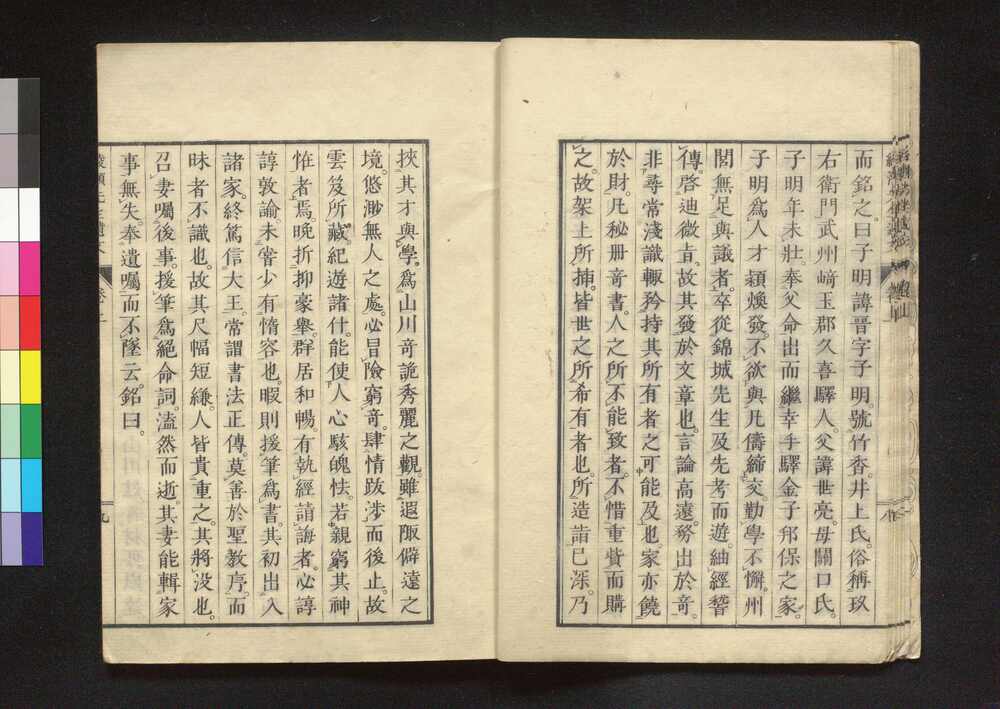 而銘之。曰子明諱晋字子明。號竹香。井上氏。俗稱玖
右衛門武州﨑玉郡久喜驛人。父諱世亮。母關口氏。
子明年未壯。奉父命出而繼幸手驛金子邦保之家。
子明爲人才穎煥發。不欲與凡儔締交。勤學不懈。州
閭無足與議者。卒從錦城先生及先考而遊。紬經繙
傳。啓迪微旨。故其發於文章也。言論高遠。務出於奇。
非尋常淺識輙矜持其所有者之可能及也。家亦饒
於財。凡秘册奇書。人之所不能致者。不惜重貲而購
之。故架上所挿。皆世之所希有者也。所造詣已深。乃
挾其才與學。爲山川奇詭秀麗之觀。雖遐陬僻遠之
境。悠渺無人之處。必冒險窮奇。肆情跋渉而後止。故
雲笈所藏。紀遊諸什。能使人心駭魄怯。若親窮其神
怪者焉。晚折抑豪舉。群居和暢。有執經請誨者。必諄
諄敦諭。未甞少有惰容也。暇則援筆爲書。其初出入
諸家。終篤信大王。常謂書法正傳。莫善於聖敎序。而
昧者不識也。故其尺幅短縑。人皆貴重之。其將没也。
召妻囑後事。援筆爲絕命詞。溘然而逝。其妻能輯家
事無失。奉遺囑而不墜云。銘曰。